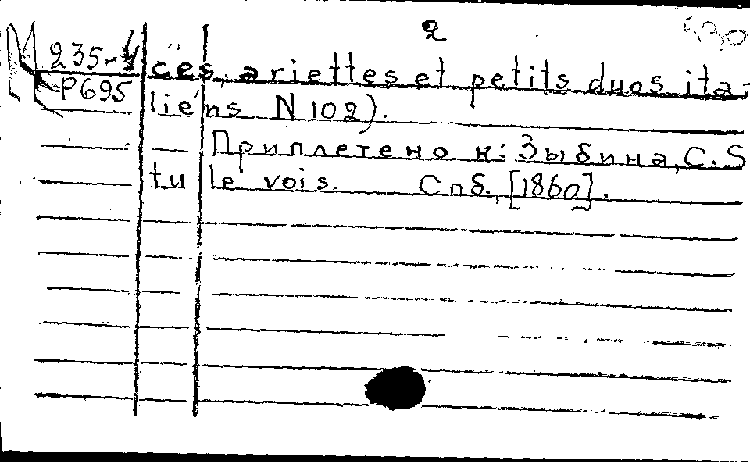 2
M 235-4
P695
ces, ariettes et petits duos ita-
liens N 102).
Приплетено к: Зыбина, С. S
tu le vois. Спб., [1860].